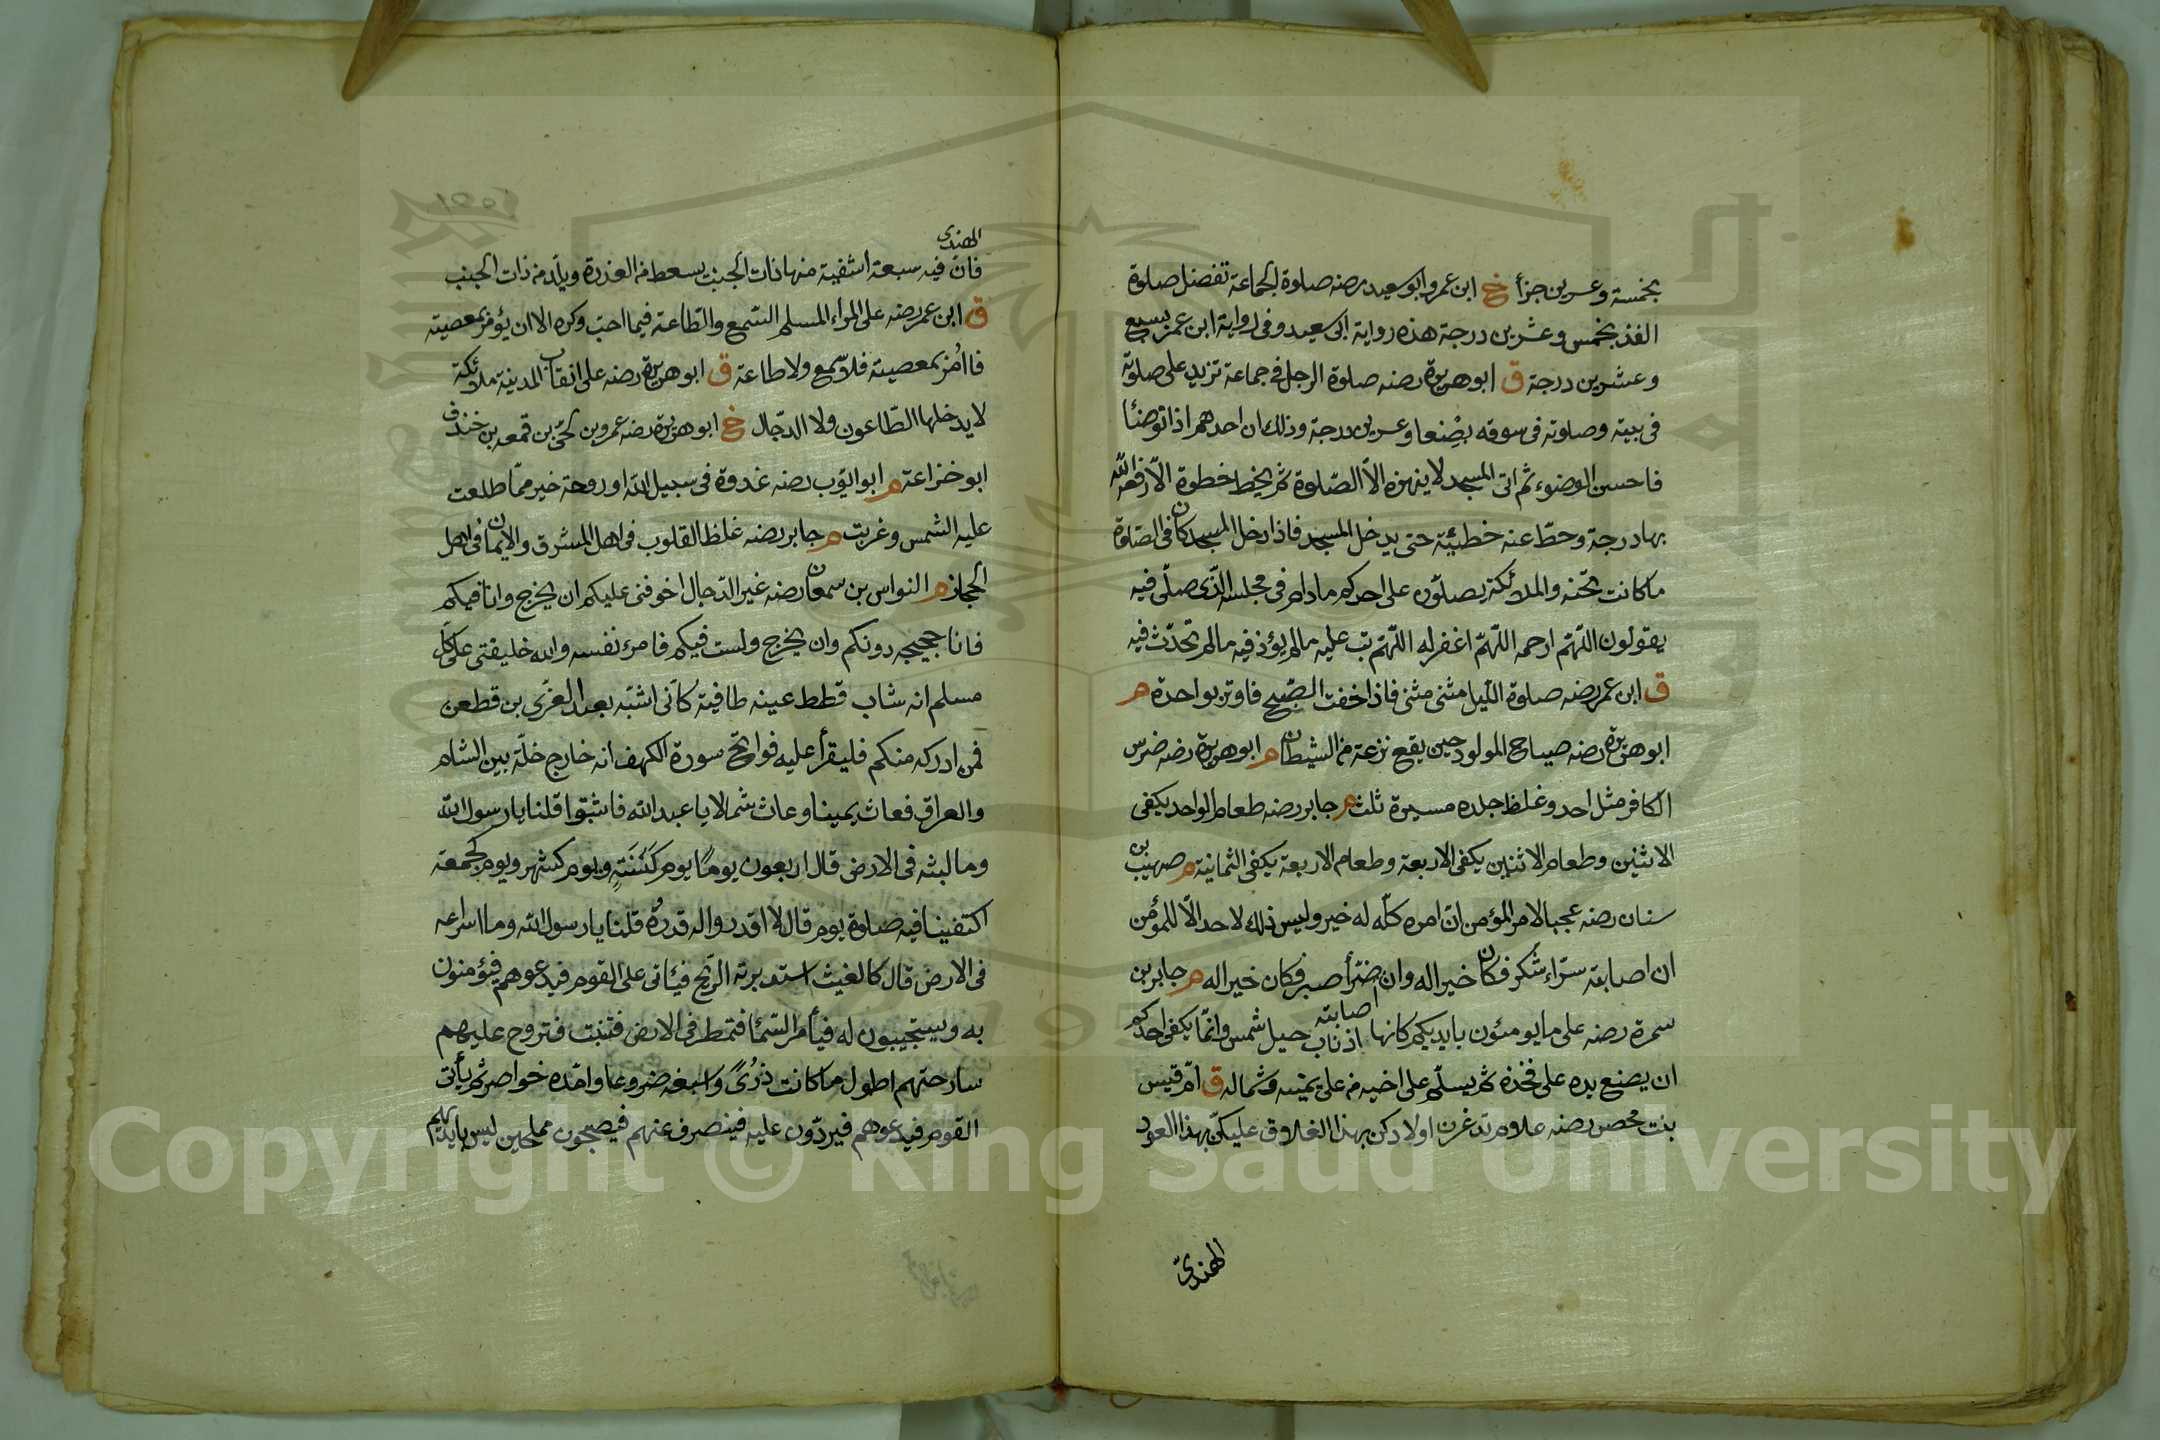 بخمسة وعشرين جزأ خ ابن عمر وابو سعيد رضه صلوة الجماعة تفضل صلوة
الفذ بخمس وعشرين درجة هذه رواية ابى سعيد وفى رواية ابن عمر بسبع
وعشرين درجة ق ابو هريرة رضه صلوة الرجل فى جماعة تزيد على صلوته
فى بيته وصلوته فى سوقه بضعا وعشرين درجة وذلك ان احدهم اذا توضأ
فاحسن الوضوء ثم اتى المسجد لا ينهزه الا الصلوة ثم لم يخط خطوة الا رفعه الله
بها درجة وحط عنه خطيئة حتى يدخل المسجد فاذا دخل المسجد كان فى الصلوة
ما كانت تحبسه والملائكة يصلون على احدكم مادام فى مجلسه الذى صلى فيه
يقولون اللهم ارحمه اللهم اغفر له اللهم تب عليه ما لم يؤذ فيه ما لم تحدث فيه
ق ابن عمر رضه صلوة الليل مثنى مثنى فاذا خفت الصبح فاوتر بواحدة م
ابو هريرة رضه صياح المولود حين يقع نزعة من الشيطان م ابو هريرة رضه ضرس
الكافر مثل احد وغلظ جلده مسيرة ثلث م جابر رضه طعام الواحد يكفى
الاثنين وطعام الاثنين يكفى الاربعة وطعام الاربعة يكفى الثمانية م صهيب بن
سنان رضه عجبا لامر المؤمن ان امره كله له خير وليس ذلك لاحد الا للمؤمن
ان اصابته سراء شكر فكان خيرا له وان اصابته ضراء صبر فكان خيرا له م جابر بن
سمرة رضه على ما يومئون بايديكم كانها اذناب خيل شمس وانما يكفى احدكم
ان يضع يده على فخذه ثم يسلم على اخيه من على يمينه وشماله ق ام قيس
بنت محصن رضه علام تدغرن اولادكن بهذا العلاق عليكن بهذا العود
الهندى
الهندى
فان فيه سبعة اشفية منها ذات الجنب يسعط من العذرة ويلد من ذات الجنب
ق ابن عمر رضه على المرء المسلم السمع والطاعة فيما احب وكره الا ان يؤمر بمعصيته
فا امر بمعصيته فلا سمع ولا طاعة ق ابو هريرة رضه على انقاب المدينة ملائكة
لا يدخلها الطاعون ولا الدجال خ ابو هريرة رضه عمرو بن لحى بن قمعه بن خندف
ابو خزاعة م ابو ايوب رضه غدوة فى سبيل الله او روحة خير مما طلعت
عليه الشمس وغربت م جابر رضه غلظ القلوب فى اهل المشرق والايمان فى اهل
الحجاز م النواس بن سمعان رضه غير الدجال اخوفنى عليكم ان يخرج وانا فيكم
فانا حجيجه دونكم وان يخرج ولست فيكم فامرء نفسه والله خليفتى على كل
مسلم انه شاب قطط عينه طافية كأنى اشبه بعبد العزى بن قطعن
فمن ادركه منكم فليقرأ عليه فواتح سورة الكهف انه خارج خلة بين الشام
والعراق فعاث يمينا وعاث شمالا يا عبد الله فاثبتوا قلنا يا رسول الله
وما لبثه فى الارض قال اربعون يوما يوم كسنة ويوم كشهر ويوم كجمعة
اكتفينا فيه صلوة يوم قال لا اقدروا له قدره قلنا يا رسول الله وما اسراعه
فى الارض قال كالغيث استدبرته الريح فيأتى على القوم فيدعوهم فيؤمنون
به ويستجيبون له فيأمر السماء فتمطر فى الارض فتنبت فتروح عليهم
سارحتهم اطول ما كانت ذرى واسبغه ضروعا وامده خواصر ثم يأتى
القوم فيدعوهم فيردون عليه فينصرف عنهم فيصبحون مملحين ليس بايديهم
Copyright © King Saud University